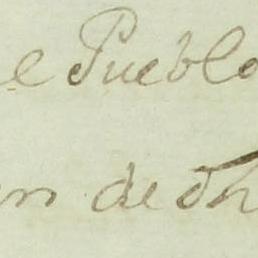 e Pueblo
en de dh